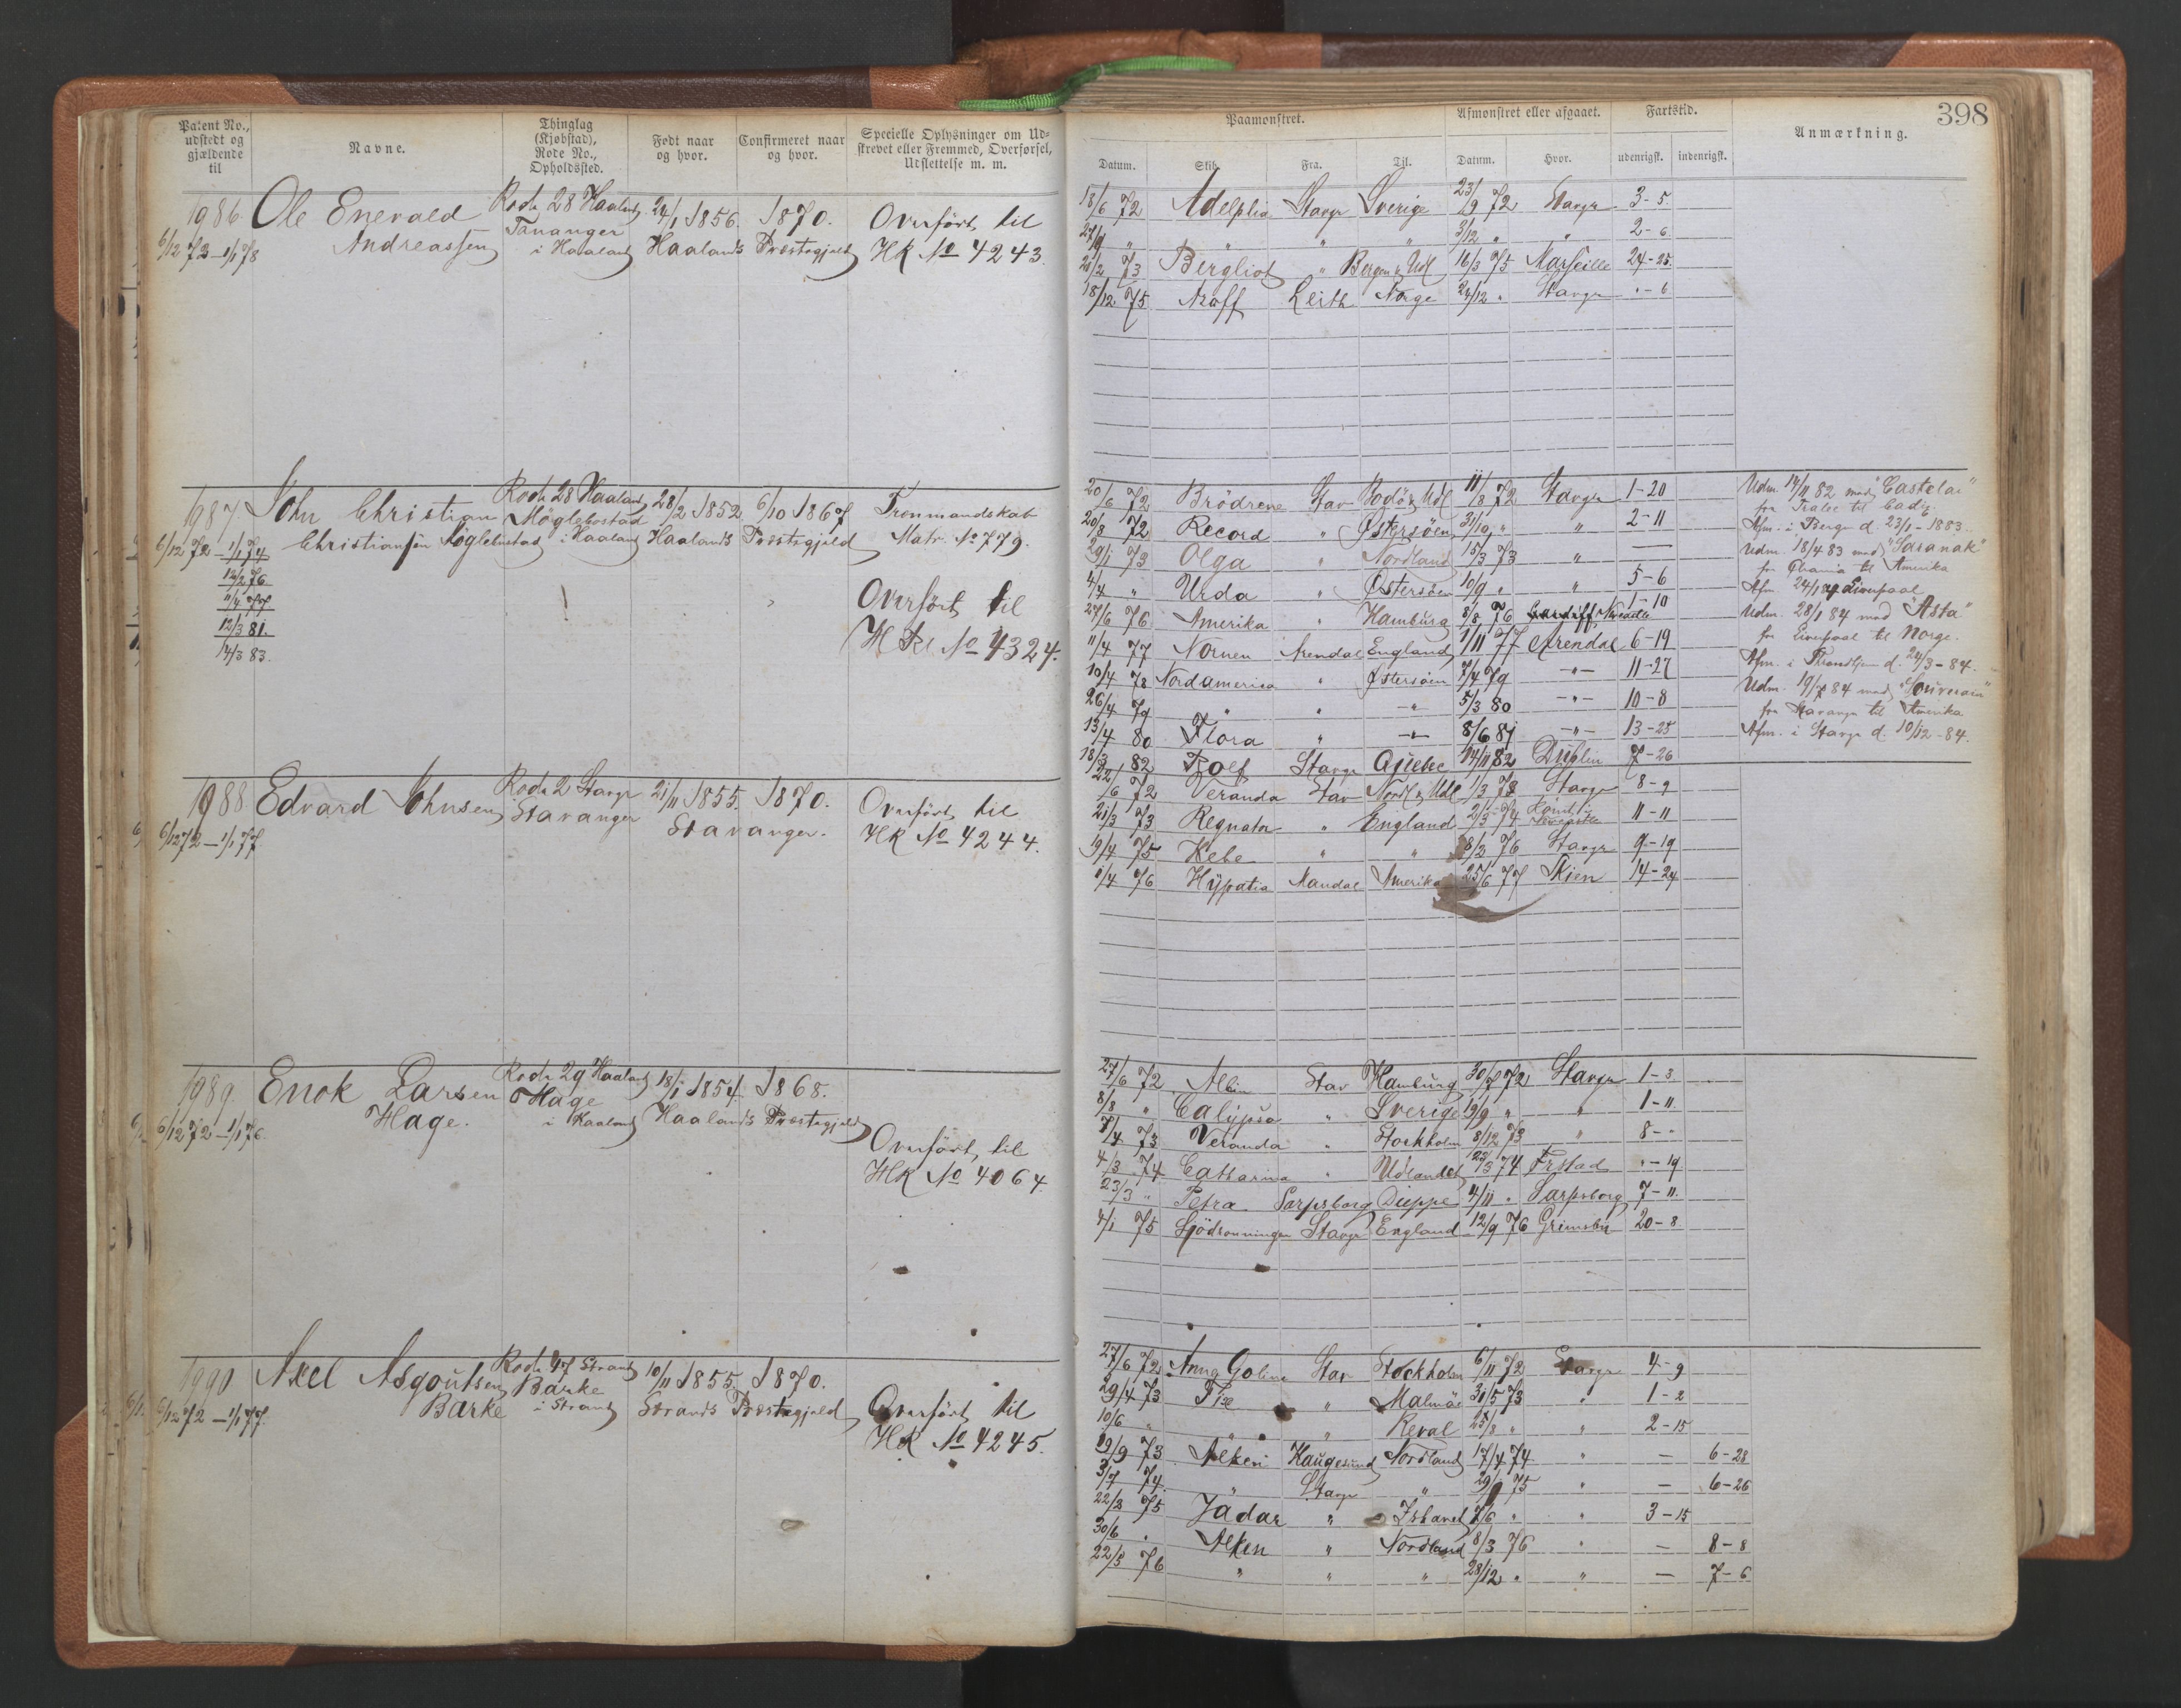 398
Patent No., udstedt og gjældende til
Navne.
Thinglag (Kjøbstad), Rode No., Opholdssted.
Født naar og hvor.
Confirmeret naar og hvor.
Specielle Oplysninger om Udskrevet eller Fremmed, Overførsel, Udslettelse m. m.
Paamonstret.
Afmonstret eller afgaaet.
Fartstid.
Anmærkning.
Datum. Skib. Fra. Til. Datum. Hvor. udenrigsk. indenrigsk.
1986 Ole Enevald Rode 28 Haaland 24/1 1856. 1870. Overført til
6/12 72 – 1/1 78 Andreassen Tananger i Haaland Haalands Præstegjeld HR No 4243.
18/6 72 Adelphia Stavgr Sverige 23/9 72 Stavgr 3-5.
27/9 " " " " 3/12 " " 2-6.
21/2 73 Bergliot " Bergen & Udl 16/3 75 Marseille 24-25.
18/12 75 Leith Norge 24/12 " Stavgr "-6
1987 John Christian Rode 28 Haaland 28/2 1852 6/10 1867 Tronmandskab
6/12 72 – 1/1 74 Christiansen Møglebostad i Haaland Haalands Præstegjeld Matr. No 779.
12/2 76
11/4 77
12/3 81.
14/3 83.
Overført til
HR No 4324.
20/6 72 Brödrene Stav Bodö & Udl 11/8 72 Stavgr 1-20
20/8 72 Record " Østersöen 31/10 " " 2-11
29/1 73 Olga " Nordland 15/3 73 " —
4/4 " Urda " Østersöen 10/9 " " 5-6
27/6 76 Amerika " Hamburg 8/8 76 1-10
11/4 77 Nornen Arendal England 1/11 77 Arendal 6-19
10/4 78 Nordamerica " Østersöen 7/4 79 -"- 11-27
26/4 79 " " -"- 5/3 80 -"- 10-8
13/4 80 Flora " -"- 8/6 81 -"- 13-25
18/3 82 Rolf Stavgr 14/11 82 Dublin 7-26
Udm. 14/11 82 med "Castelar"
fra Tralee til Cadiz.
Afm. i Bergen d. 23/1 - 1883.
Udm. 18/4 83 med "Saranak"
fra Chania til Amerika
Afm. 24/1 84 Liverpool
Udm. 28/1 84 med "Asta"
fra Liverpool til Norge.
Afm. i Throndhjem d. 24/3 - 84.
Udm. 19/7 84 med "Souverain"
fra Stavanger til Amerika
Afm. i Stavgr d. 10/12 - 84.
1988 Edvard Johnsen Rode 2 Stavgr 21/11 1855. 1870. Overført til
6/12 72 – 1/1 77 Stavanger Stavanger. HR No 4244.
22/6 72 Veranda Stav Nordl & Udl 1/3 73 Stavgr 8-9
21/3 73 Regnator " England 2/3 74 11-11
19/4 75 Hebe " " 8/2 76 Stavgr 9-19
1/4 76 Hypatia Mandal Amerika 25/6 77 Skien 14-24
1989. Enok Larsen Rode 29 Haaland 18/1 1854. 1868.
6/12 72 – 1/1 76. Hage. Hage i Haaland Haalands Præstegjeld
Overført til
HR No 4064
27/6 72 Albin Stav Hamburg 30/7 72 Stavgr 1-3.
8/8 " Calypso " Sverige 19/9 " " 1-11.
7/4 73 Veranda " Stockholm 8/12 73 " 8-"
4/3 74 Catharina " Udlandet 22/3 74 "-19
23/3 " Petra Sarpsborg Dieppe 4/11 " Sarpsborg 7-11.
4/1 75 Sjödronningen Stavgr England 12/9 76 Grimsby 20-8
1990 Axel Asgoutsen Rode 47 Strand 10/11 1855. 1870.
6/12 72 – 1/1 77. Barke Barke i Strand Strands Præstegjeld
Overført til
HR No 4245.
27/6 72 Anna Goline Stav Stockholm 6/11 72 Stavgr 4-9
29/4 73 " Malmö 31/5 73 " 1-2
10/6 " " " Reval 25/8 " " 2-15
19/9 73 Alken Haugesund Nordland 17/4 74 " — 6-28
3/7 74 Stavgr " 29/1 75 " — 6-26
22/3 75 Jädar " Island 7/6 " " 3-15
30/6 " Alken " Nordland 8/3 76 " — 8-8
22/5 76 " " " 28/12 " " — 7-6